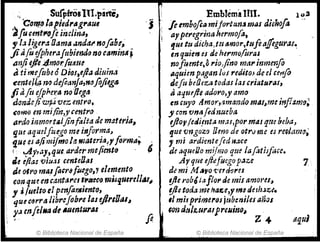 Suspiros III. parte,
Como la piedra graue
à su centro se inclina,
y la ligera llama andar no sabe,
si à su esphera subiendo no camina;
ansi este Amor suaue
à ti me sube ô Dios, esta diuina
centella no desfansa, no sosiega
si à su esphera no llega
donde
como en mi fin, y centro
ardo inmortal sin falta de materia,
que aquel fuego me informa,
que es assi mismo la materia, y forma,
Ay, ay, que arder me siento
de estas viuas centellas
de otro mas sacro fuego, y elemento
con que en cantares trueco mis querellas,
y suelto el pensamiento,
que corra libre sobre las estrellas,
ya en selua de auenturas
se
5
6
Emblema IIII.
se embosca mi fortuna mas dichosa
ay peregrina hermosa,
que tu dicha, tu amor, tu fe asseguras,
en quien es de hermosuras
no fuente, ò rio, sino mar inmenso
a quien pagan los reditos de el censo
de su belleza todas las criaturas,
à aqueste adoro, y amo
en cuyo Amor, amando mas, me inflamo;
y con vna sed nueba
estoy sedienta mas, por mas que beba,
que vn gozo lleno de otro me es reclamo,
y mi ardiente sed nace
de aquello mismo que la satisface.
Ay que este fuego pace
de mi Mayo verdores
este roba la flor de mis amores,
este toda me haze, y me deshaze.
el mis primeros jubeniles años
con dulzuras preuino,
7
Z 4
aqui
© Biblioteca Nacional de España
© Biblioteca Nacional de España